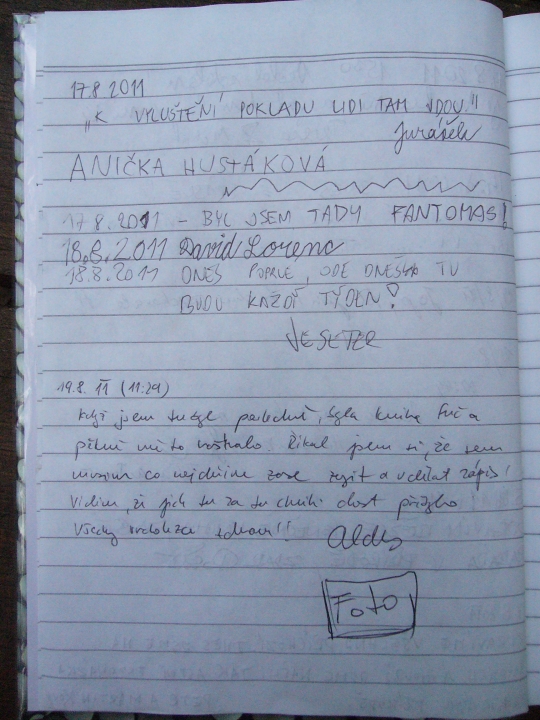 17.8 2011
„K VYLUŠTĚNÍ POKLADU LIDI TAM JDOU."
Jurášek
ANIČKA HUSŤÁKOVÁ
17.8.2011 - BYL JSEM TADY FANTOMAS!
18.8.2011 David Lorenc
18.8.2011 DNES POPRVE, ODE DNEŠKA TU
BUDU KAŽDÝ TÝDEN!
JESETER
19.8. 11 (11:29)
Když jsem tu byl posledně, byla kniha fuč a
pěkně mě to naštvalo. Říkal jsem si, že sem
musím co nejdříve zase zajít a udělat zápis!
Vidím, že jich tu za tu chvíli dost přibylo.
Všechny zdraví!!
Aldis
Foto